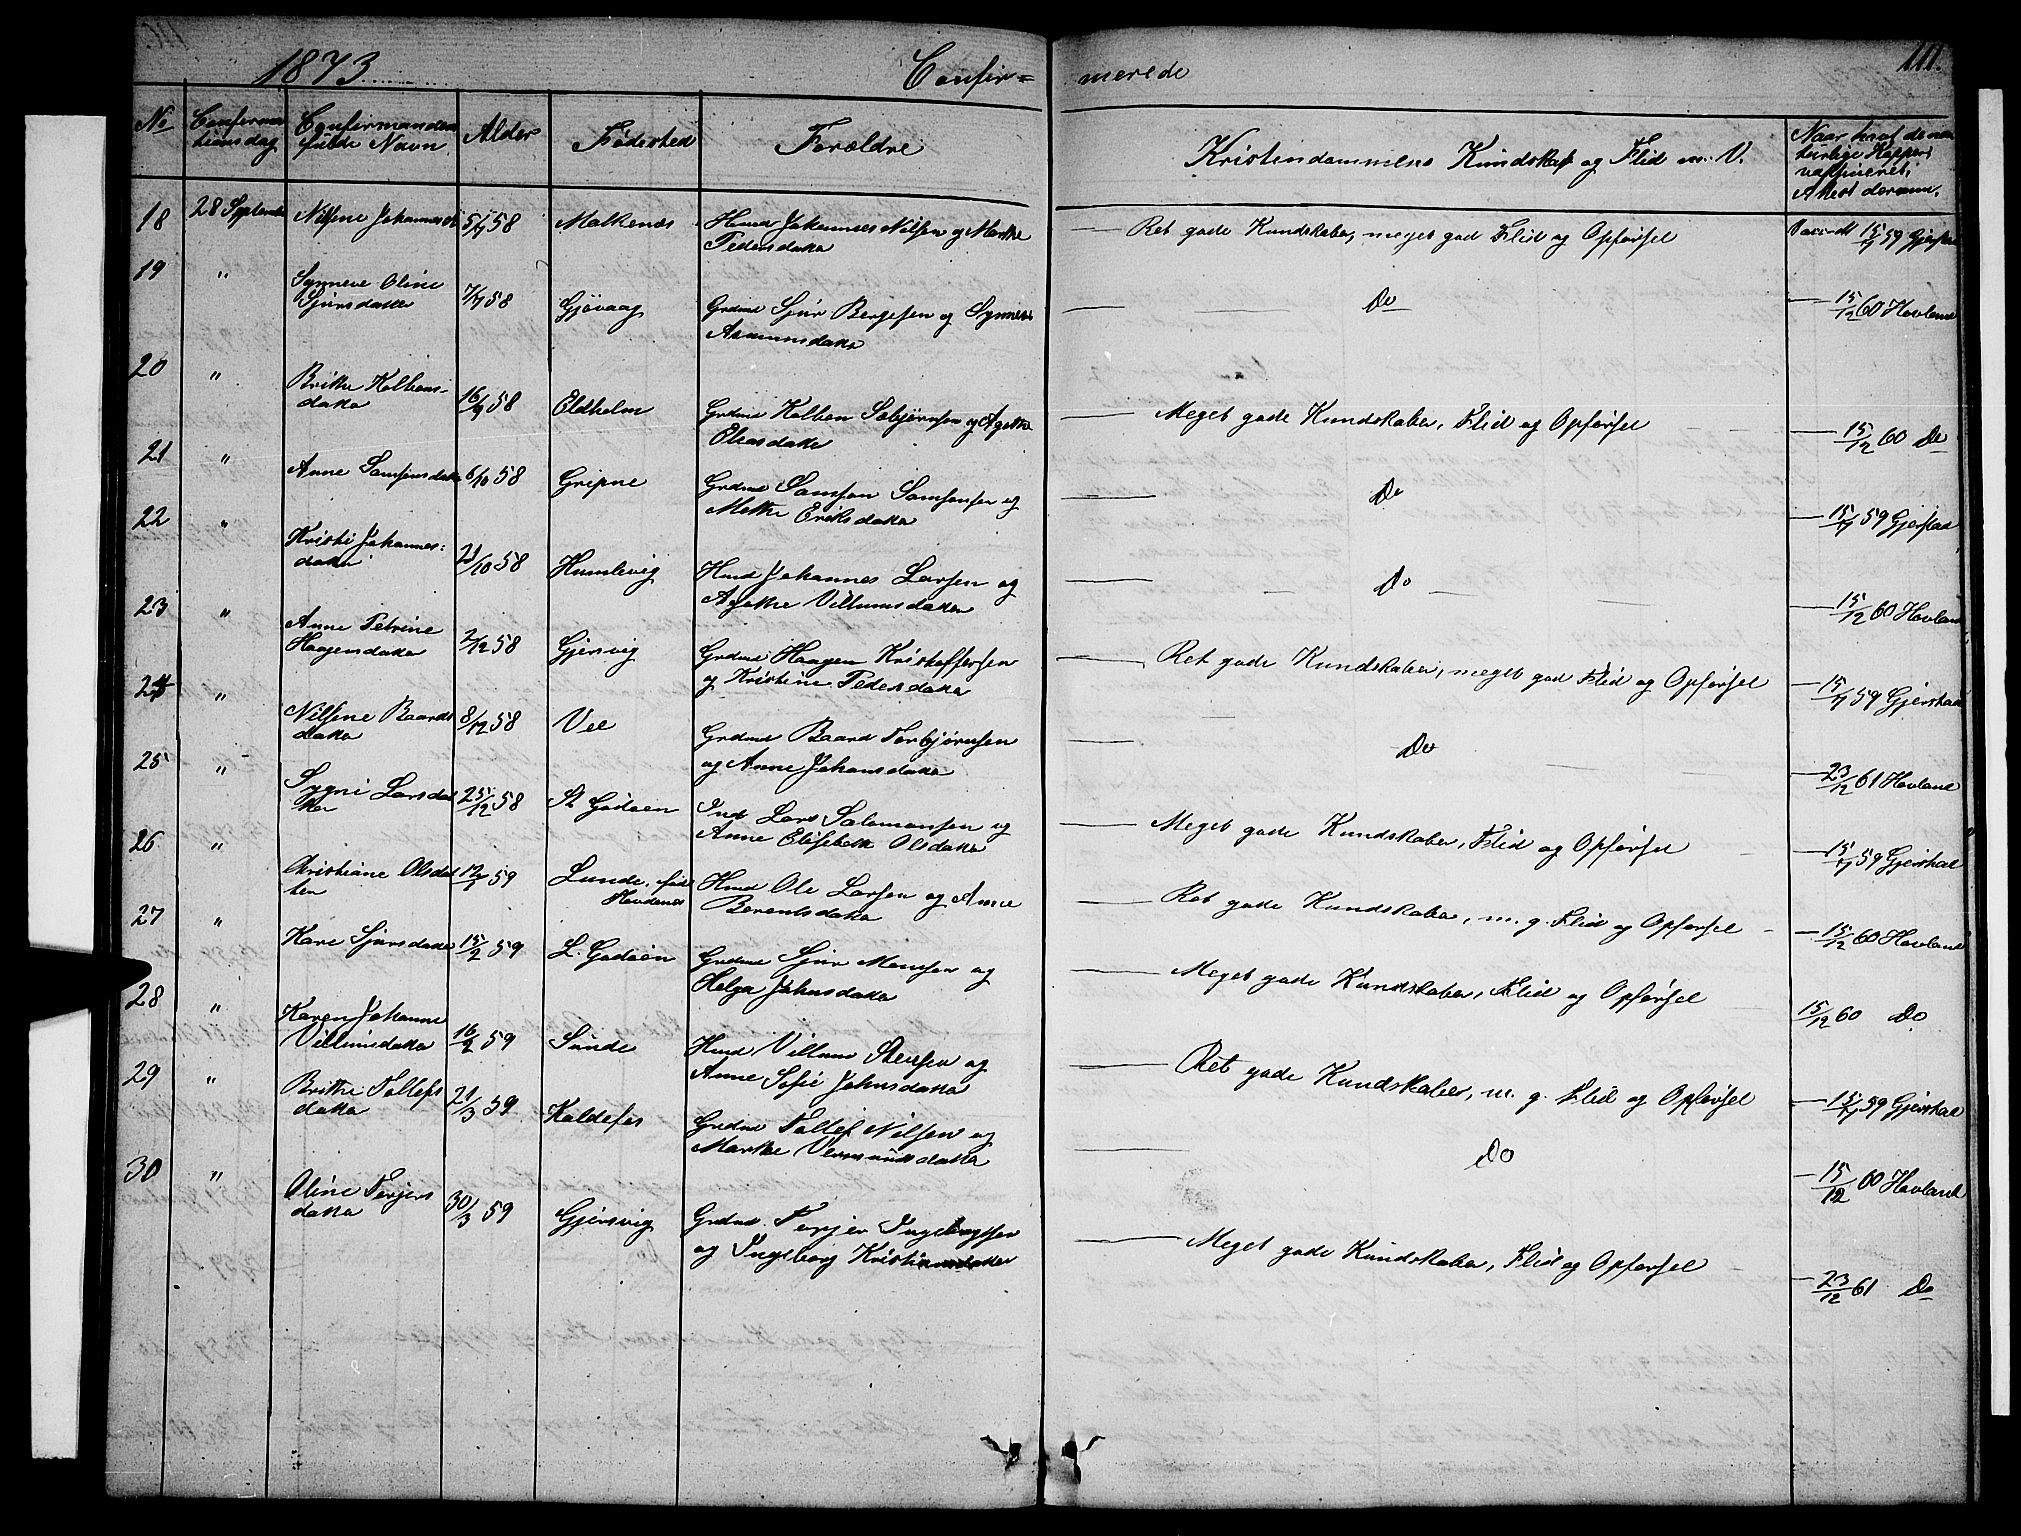 1873 Confir= merede 111.
No Confirma tions dag Confirmandens fulde Navn Alder Fødested Forældre Kristendommens Kundskab og Flid m. V. Naar havt de na turlige Kopper vaksineret, Attest derom.
18 28 September Nilsine Johannesd 5/7 58 Malkenes Huusmd Johannes Nilsen og Marthe Pedersdatter Ret gode Kundskaber, meget god Flid og Opførsel 15/7 59 Gjerstad
19 " Synneve Oline Sjursdatter 7/7 58 Gjøvaag Grdmd Sjur Bergesen og Synneve Asmunsdatter — Do — 15/12 60 Hovland
20 " Brithe Kolbens- datter 16/9 58 Eldholm Grdmd Kolben Sebjørnsen og Agethe Eliasdatter — Meget gode Kundskaber, Flid og Opførsel — 15/12 60 Do
21 " Anne Samsonsdatter 6/10 58 Gripne Grdmd Samson Samsonsen og Methe Eriksdatter — Do — 15/7 59 Gjerstad
22 " Kristi Johannes= datter 21/10 58 Humlevig Hmd Johannes Larsen og Agethe Villumsdatter — Do — 15/12 60 Hovland
23 " Anne Petrine Haagensdatter 2/12 58 Gjersvig Grdmd Haagen Kristoffersen og Kristine Pedersdatter — Ret gode Kundskaber, meget god Flid og Opførsel — 15/7 59 Gjerstad
24 " Nilsine Baards datter 8/12 58 Vee Grdmd Baard Torbjørnsen og Anne Johansdatter — Do — 23/12 61 Hovland
25 " Sygni Larsdat ter 25/12 58 St Godøen Ind Lars Salamonsen og Anne Elisebeth Olsdatter — Meget gode Kundskaber, Flid og Opførsel — 15/7 59 Gjerstad
26 " Christiane Olsdat ter 59 Lunde, Hmd Ole Larsen og Anne Berentsdatter — Ret gode Kundskaber, m. g. Flid og Opførsel — 15/12 60 Hovland
27 " Kari Sjursdatter 15/2 59 L. Godøen Grdmd Sjur Monsen og Helga Johnsdatter — Meget gode Kundskaber, Flid og Opførsel 15/12 60 Do
28 " Karen Johanne Villumsdatter 16/2 59 Sunde Hmd Villum Stensen og Anne Sofie Johnsdatter — Ret gode Kundskaber, m. g. Flid og Opførsel — 15/7 59 Gjerstad
29 " Brithe Tollefs datter 21/3 59 Koldefos Grdmd Tollef Nilsen og Marthe Vermundsdatter — Do — 15/12 60 Hovland
30 " Oline Terjers datter 30/3 59 Gjersvig Grdmd Terjer Ingebrigtsen og Ingeborg Kristiansdatter — Meget gode Kundskaber, Flid og Opførsel — 23/12 61 Do